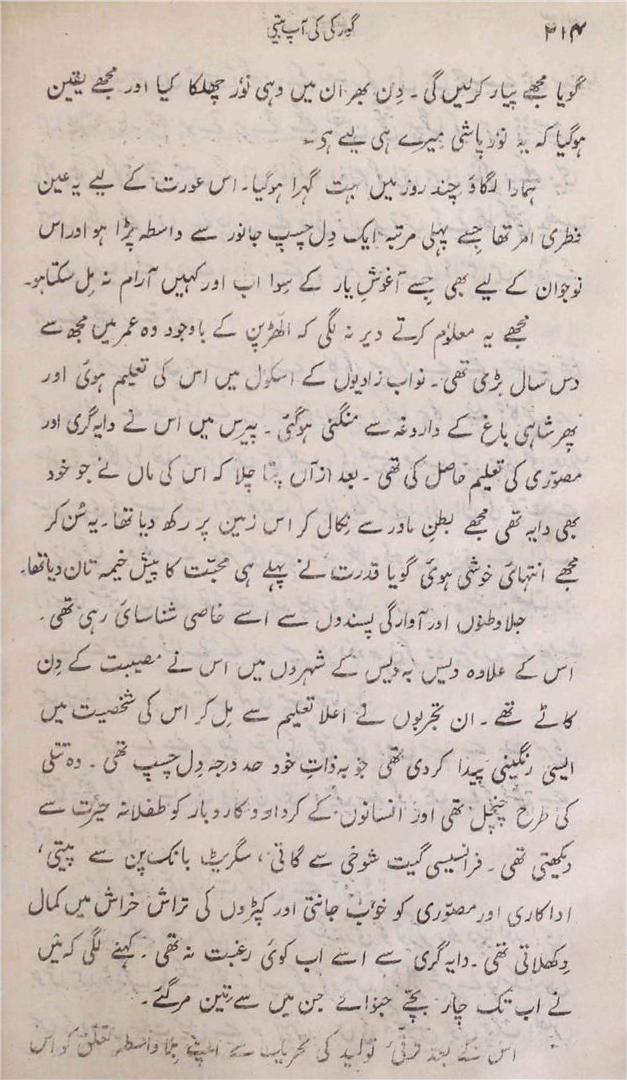 ۳۱۴ گورکی کی آپ بیتی
گویا مجھے پیار کرلیں گی ۔ دِن بھر ان میں وہی نوُر چھلکا کیا اور مجھے یقین
ہوگیا کہ یہ نوُر پاشی میرے ہی لیے ہے ۔
ہمارا لگاؤ چند روز میں بہت گہرا ہوگیا۔ اس عورت کے لیے یہ عین
فطری امر تھا جِسے پہلی مرتبہ ایک دِل چسپ جانور سے واسطہ پڑا ہو اور اس
نوجوان کے لیے بھی جِسے آغوشِ یار کے سِوا اب اور کہیں آرام نہ مِل سکتا ہو۔
مجھے یہ معلوُم کرتے دیر نہ لگی کہ الھّڑپن کے باوجود وہ عمر میں مجھ سے
دس سال بڑی تھی ۔ نواب زادیوں کے اسکوُل میں اس کی تعلیم ہوئ اور
پھر شاہی باغ کے داروغہ سے منگنی ہوگئ ۔ پیرس میں اس نے دایہ گری اور
مصوّری کی تعلیم حاصل کی تھی ۔ بعد ازآں پتا چلا کہ اس کی ماں نے جو خود
بھی دایہ تھی مجھے بطنِ مادر سے نِکال کر اس زمین پر رکھ دیا تھا۔ یہ سُن کر
مجھے انتہائ خوشی ہوئ گویا قدرت نے پہلے ہی محبّت کا پیش خیمہ تان دیا تھا۔
جلا وطنوُں اور آوارگی پسندوں سے اسے خاصی شناسائ رہی تھی ۔
اس کے علاوہ دیس بہ دیس کے شہروں میں اس نے مصیبت کے دِن
کاٹے تھے ۔ ان تجربوں نے اعلا تعلیم سے مِل کر اس کی شخصیت میں
ایسی رنگینی پیدا کردی تھی جو بہ ذاتِ خود حد درجہ دِل چسپ تھی ۔ وہ تتلی
کی طرح چنچل تھی اور انسانوں کے کردار و کاروبار کو طفلانہ حیرت سے
دیکھتی تھی ۔ فرانسیسی گیت شوخی سے گاتی ، سگریٹ بانک پن سے پیتی ،
اداکاری اور مصوّری کو خوُب جانتی اور کپڑوں کی تراش خراش میں کمال
دِکھلاتی تھی ۔ دایہ گری سے اسے اب کوئ رغبت نہ تھی ۔ کہنے لگی کہ میَں
نے اب تک چار بچّے جنوائے جن میں سے تین مر گئے ۔
اس کے بعد ترقّی تولید کی تحریک سے اپنے بِلا واسطہ تعلّق کو اس